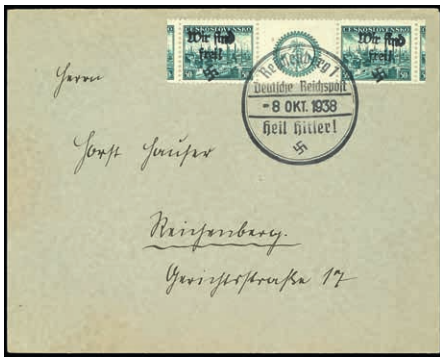 ČESKOSLOVENSKO
Wir sind
frei!
ČESKOSLOVENSKO
Wir sind
frei!
Reichenberg 1
Deutsche Reichspost
- 8 OKT. 1938
Heil Hitler!
Herrn
Horst Hauser
Reichenberg.
Gerichtsstraße 17